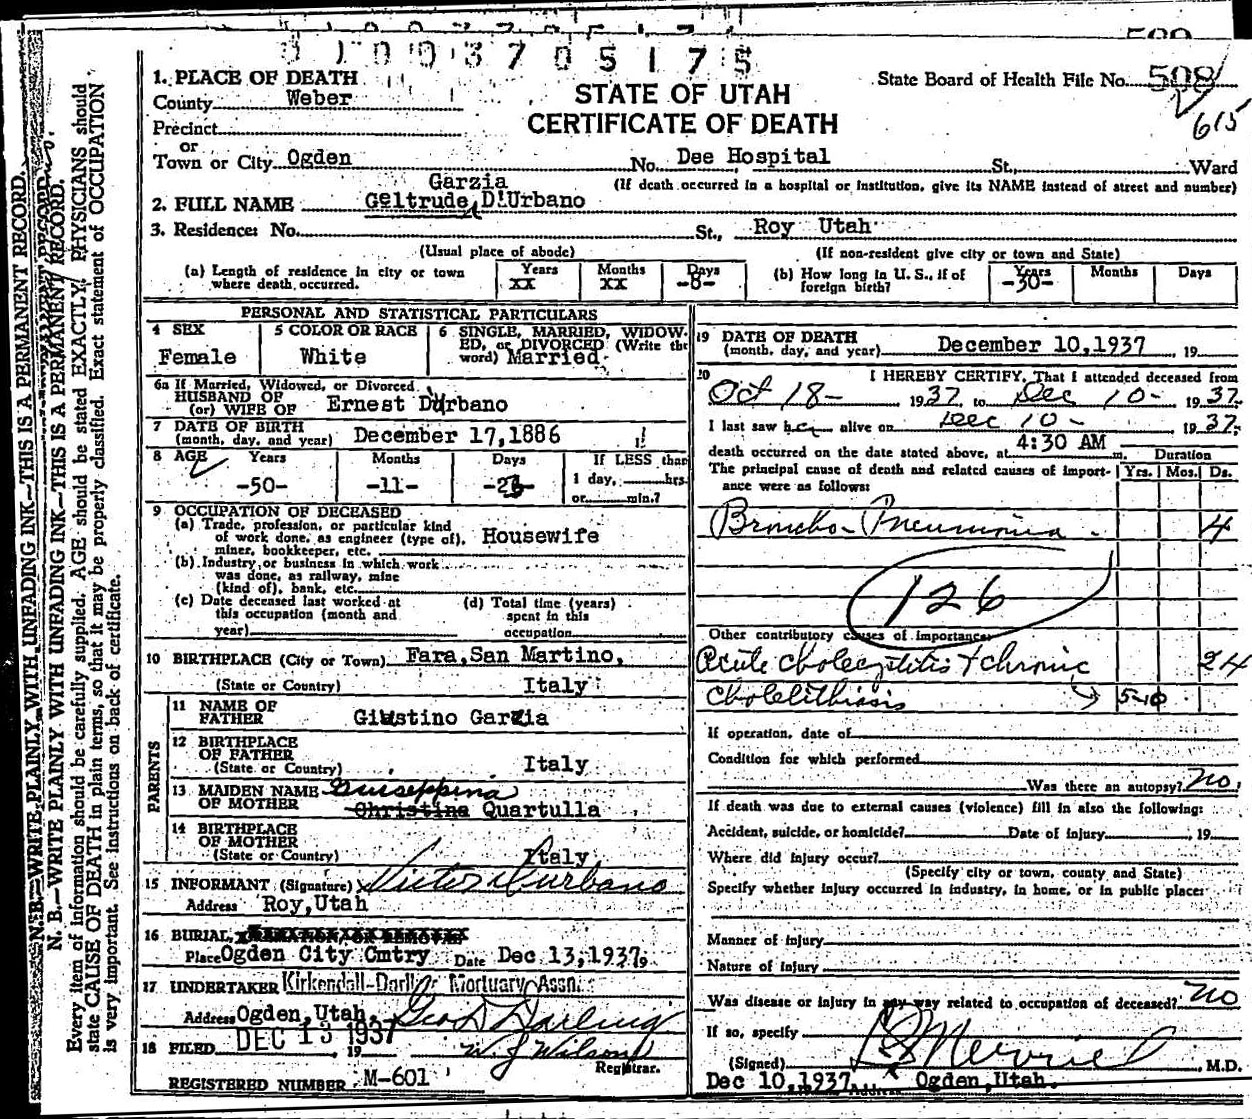 31003705175
State Board of Health File No. 508
615
STATE OF UTAH
CERTIFICATE OF DEATH
1. PLACE OF DEATH
County Weber
Precinct
or
Town or City Ogden No. Dee Hospital St., Ward
(If death occurred in a hospital or institution, give its NAME instead of street and number)
Garzia
2. FULL NAME Geltrude D'Urbano
3. Residence: No. St., Roy Utah
(Usual place of abode) (If non-resident give city or town and State)
(a) Length of residence in city or town where death occurred. Years xx Months xx Days -8-
(b) How long in U. S., if of foreign birth? Years -30- Months Days
PERSONAL AND STATISTICAL PARTICULARS
4 SEX Female
5 COLOR OR RACE White
6 SINGLE, MARRIED, WIDOWED, or DIVORCED (Write the word) Married
6a If Married, Widowed, or Divorced
HUSBAND OF
(or) WIFE OF Ernest Durbano
7 DATE OF BIRTH
(month, day, and year) December 17, 1886
8 AGE Years Months Days If LESS than
-50- -11- -23- 1 day, hrs.
or min.?
9 OCCUPATION OF DECEASED
(a) Trade, profession, or particular kind
of work done, as engineer (type of), Housewife
miner, bookkeeper, etc.
(b) Industry or business in which work
was done, as railway, mine
(kind of), bank, etc.
(c) Date deceased last worked at this occupation (month and year)
(d) Total time (years) spent in this occupation
10 BIRTHPLACE (City or Town) Fara, San Martino,
(State or Country) Italy
PARENTS
11 NAME OF
FATHER Giustino Garzia
12 BIRTHPLACE
OF FATHER
(State or Country) Italy
13 MAIDEN NAME Guiseppina
OF MOTHER Christina Quartulla
14 BIRTHPLACE
OF MOTHER
(State or Country) Italy
15 INFORMANT (Signature) Victor Durbano
Address Roy, Utah
16 BURIAL, CREMATION, OR REMOVAL
Place Ogden City Cmtry Date Dec 13, 1937,
17 UNDERTAKER Kirkendall-Darling Mortuary Assn.
Address Ogden, Utah, Geo D Darling
18 FILED DEC 13 1937, 19 W. J Wilson
Registrar.
REGISTERED NUMBER M-601
19 DATE OF DEATH
(month, day, and year) December 10, 1937, 19
20 I HEREBY CERTIFY, That I attended deceased from
Oct 18- 1937, to Dec 10- 1937.
I last saw her alive on Dec 10- 1937,
4:30 AM
death occurred on the date stated above, at m. Duration
The principal cause of death and related causes of importance were as follows: Yrs. Mos. Ds.
Broncho-Pneumonia. 4
126
Other contributory causes of importance:
Acute cholecystitis + chronic 24
Cholelithiasis 5-10
If operation, date of
Condition for which performed
Was there an autopsy? no.
If death was due to external causes (violence) fill in also the following:
Accident, suicide, or homicide? Date of injury , 19
Where did injury occur?
(Specify city or town, county and State)
Specify whether injury occurred in industry, in home, or in public place:
Manner of injury
Nature of injury
Was disease or injury in any way related to occupation of deceased? no
If so, specify
(Signed) Merrill, M.D.
Dec 10, 1937 Address Ogden, Utah.
N. B.—WRITE PLAINLY WITH UNFADING INK—THIS IS A PERMANENT RECORD.
N. B.—WRITE PLAINLY WITH UNFADING INK—THIS IS A PERMANENT RECORD.
Every item of information should be carefully supplied. AGE should be stated EXACTLY. PHYSICIANS should
state CAUSE OF DEATH in plain terms, so that it may be properly classified. Exact statement of OCCUPATION
is very important. See instructions on back of certificate.